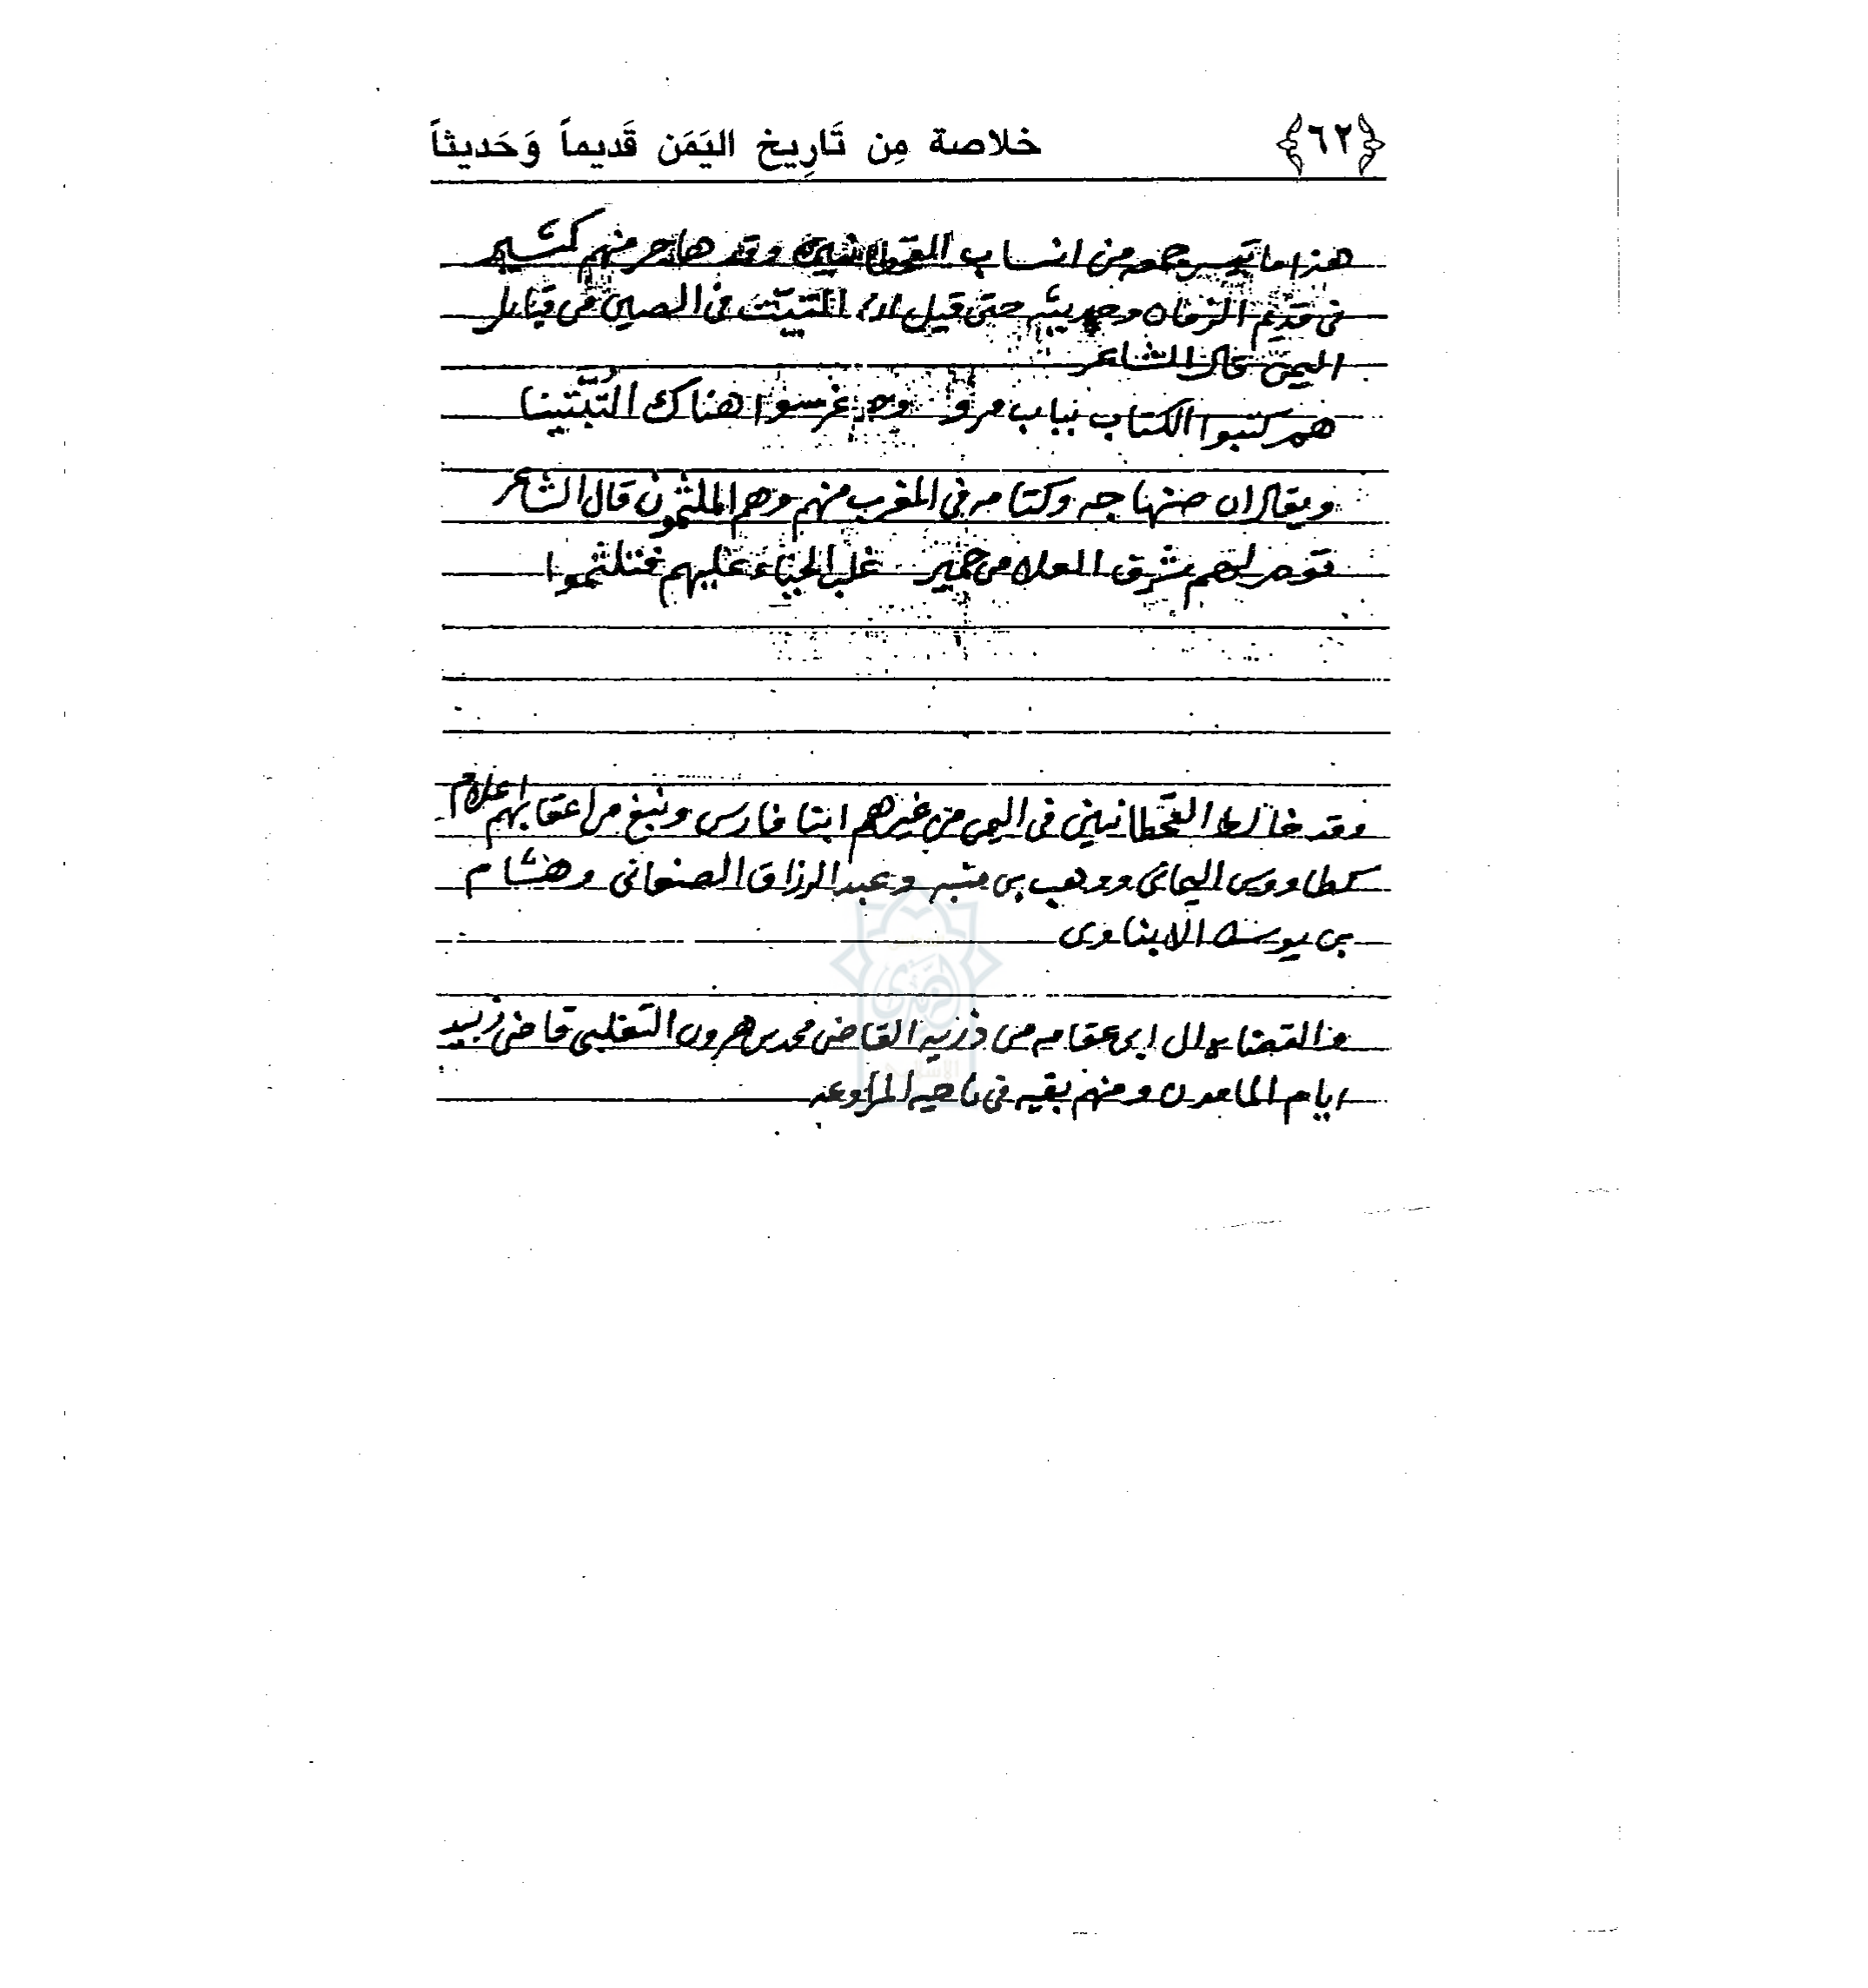 ﴿٦٢﴾ خلاصة مِن تَارِيخ اليَمَن قَديماً وَحَديثاً
هذا ما تيسر جمعه من انساب القحطانيين وقد هاجر منهم كثير
في قديم الزمان وحديثه حتى قيل ان التبت في الصين من قبايل
اليمن قال الشاعر
هم كتبوا الكتاب بباب مرو وهم غرسوا هناك التُبَّتينا
ويقال ان صنهاجه وكتامه في المغرب منهم وهم الملثمون قال الشاعر
قوم لهم شرق العلا من حمير غلب الحياء عليهم فتلثموا
وقد خالط القحطانيين في اليمن من غيرهم ابنا فارس ونبغ من اعقابهم اعلام
كطاووس اليماني ووهب بن منبه وعبد الرزاق الصنعاني وهشام
بن يوسف الابناوى
والقضاه ال ابى عقامه من ذريه القاضى محمد بن هرون التغلبى قاضى زبيد
ايام المامون ومنهم بقيه في ناحيه المراوعه
الإسلامي